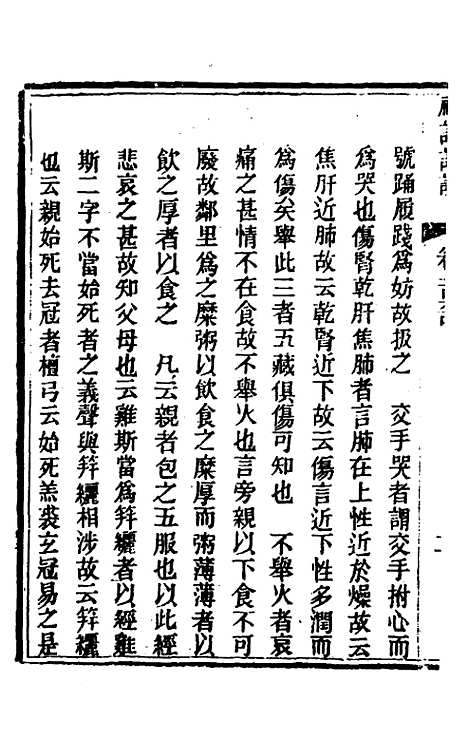 號踊履踐爲妨故扱之　交手哭者謂交手拊心而
爲哭也傷腎乾肝焦肺者言肺在上性近於燥故云
焦肝近肺故云乾腎近下故云傷言近下性多潤而
爲傷矣舉此三者五藏俱傷可知也　不舉火者哀
痛之甚情不在食故不舉火也言旁親以下食不可
廢故鄰里爲之糜粥以飲食之糜厚而粥薄薄者以
飲之厚者以食之　凡云親者包之五服也以此經
悲哀之甚故知父母也云雞斯當爲笄纚者以經雞
斯二字不當始死者之義聲與笄纚相涉故云笄纚
也云親始死去冠者檀弓云始死羔裘玄冠易之是